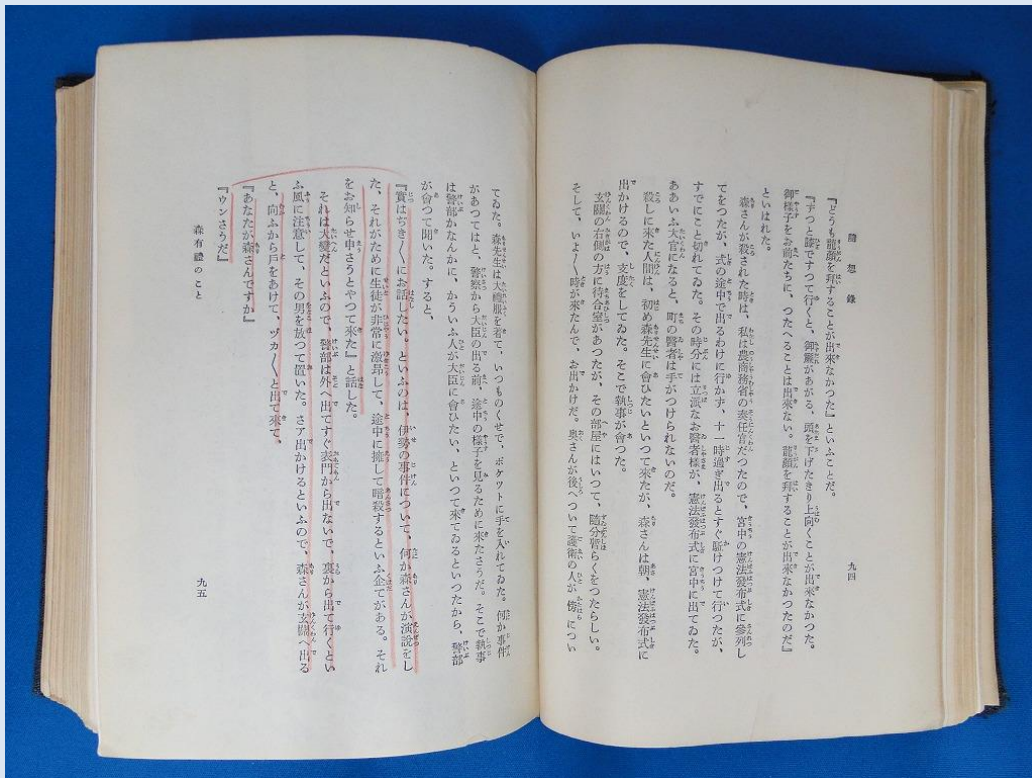 隨想録
九四
『どうも龍顔を拜することが出來なかつた』といふことだ。
『ずつと膝ですつて行くと、御簾があがる、頭を下げたきり上向くことが出來なかつた。
御樣子をお前たちに、つたへることは出來ない。龍顔を拜することが出來なかつたのだ』
といはれた。
森さんが殺された時は、私は農商務省の奏任官だつたので、宮中の憲法發布式に參列し
てをつたが、式の途中で出るわけに行かず、十一時過ぎ出るとすぐ駈けつけて行つたが、
すでにこと切れてゐた。その時分には立派なお醫者樣が、憲法發布式に宮中に出てゐた。
ああいふ大官になると、町の醫者は手がつけられないのだ。
殺しに來た人間は、初め森先生に會ひたいといつて來たが、森さんは朝、憲法發布式に
出かけるので、支度をしてゐた。そこで執事が會つた。
玄關の右側の方に待合室があつたが、その部屋にはいつて、隨分暫らくをつたらしい。
そして、いよ〳〵時が來たんで、お出かけだ。奥さんが後へついて護衛の人が傍につい
てゐた。森先生は大禮服を着て、いつものくせで、ポケツトに手を入れてゐた。何か事件
があつてはと、警察から大臣の出る前、途中の樣子を見るために來たさうだ。そこで執事
は警部かなんかに、かういふ人が大臣に會ひたい、といつて來てゐるといつたから、警部
が會つて聞いた。すると、
『實はぢき〳〵にお話したい。といふのは、伊勢の事件について、何か森さんが演説をし
た、それがために生徒が非常に激昂して、途中に擁して暗殺するといふ企てがある。それ
をお知らせ申さうとやつて來た』と話した。
それは大變だといふので、警部は外へ出てすぐ表門から出ないで、裏から出て行くとい
ふ風に注意して、その男を放つて置いた。さア出かけるといふので、森さんが玄關へ出る
と、向ふから戸をあけて、ヅカ〳〵と出て來て、
『あなたが森さんですか』
『ウンさうだ』
森有禮のこと
九五